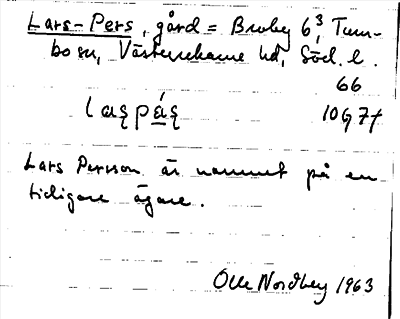 Lars-Pers, gård = Broby 6³, Tum-
bo sn, Västerrekarne hd, Södl. l.
66
laşpáş 10G7f
Lars Persson är namnet på en
tidigare ägare.
Olle Nordbey 1963